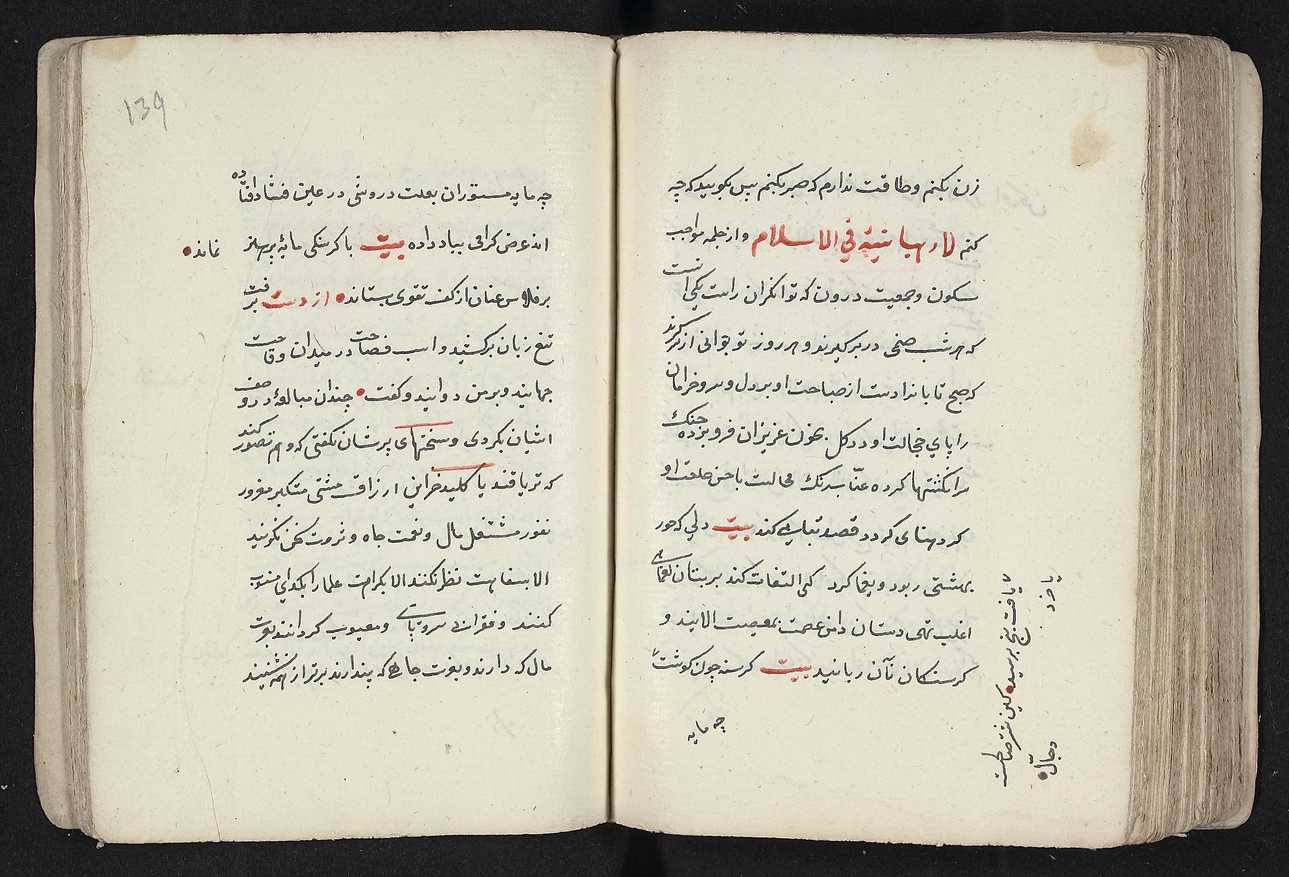 زن بکنم وطاقت ندارم که صبر بکنم پس بکویید که چه
کنم لا رهبانیة فی الاسلام واز جمله مواجب
سکون وجمعیت درون که توانکران راست یکی انست
که هرشب صنمی در بر کیرند وهر روز تو جوانی از سرکرند
که صبح تابان را دست از صباحت او بر دل وسرو خرامان
را پای خجالت او در کل بخون عزیزان فرو برده جنک
سر انکشتها کرده عناب رنک محالست با حسن طلعت او
کرد مناهی کردد قصد تباهی کند بیت دلی که حور
بهشتی ربود ویغما کرد کی التفات کند بر بتان یغمایی
اغلب تهی دستان دامن عصمت بمعصیت الایند و
کرسنکان نان ربایند بیت کرسنه چون کوشت
یافت نپرسید کین شتر صالحست
یا خر
دجال
چه مایه
139
چه مایه مستوران بعلت درویشی در عین فساد افتاده
اند عرض کرامی بباد داده بیت با کرسنکی مایهٔ پرهیز
نماند
بر افلاس عنان از کف تقوی بستاند از دست برفت
تیغ زبان برکشید واسب فصاحت در میدان وقاحت
جهانید وبر من دوانید وکفت چندان مبالغه در وصف
ایشان بکردی وسخنهای پریشان بکفتی که وهم تصور کند
که تریاقند یا کلید خزاین ارزاق مشتی متکبر مغرور
نفور مشتغل مال ونعمت جاه وثروت سخن نکویند
الا بسفاهت نظر نکنند الا بکراهت علما را بکدایی منسوب
کنند وفقرا را بی سر وپایی ومعیوب کردانند بعزت
مال که دارند وبعزت جاهی که پندارند برتر از همه نشینند